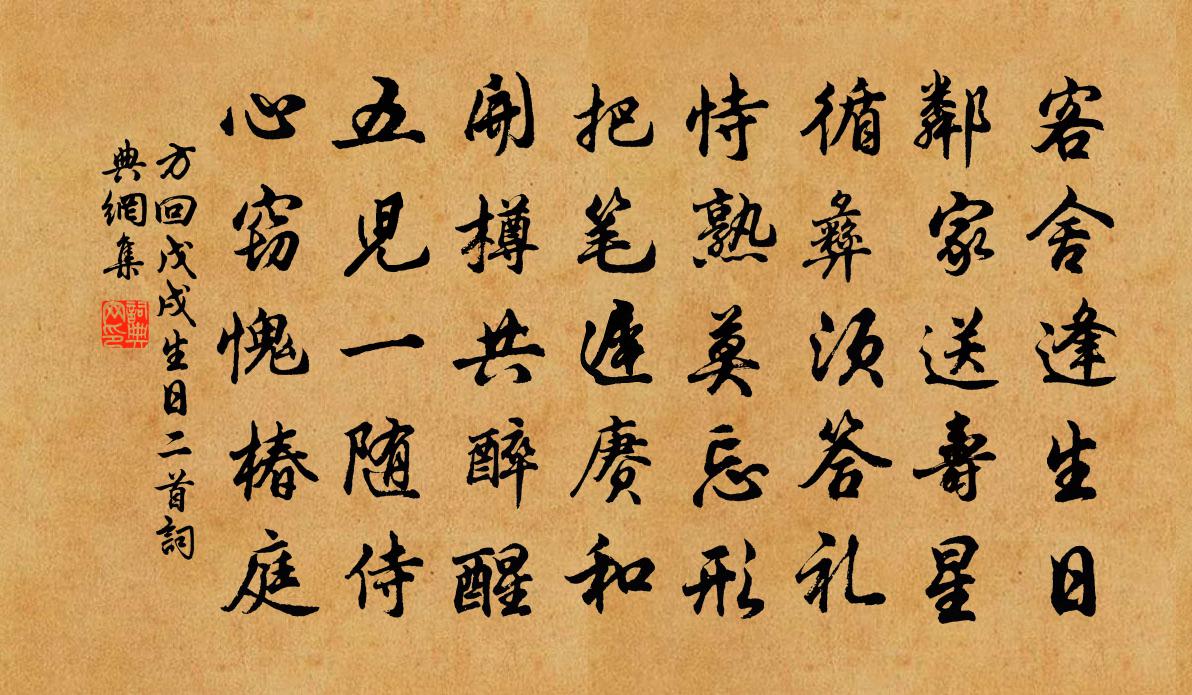 客舍逢生日
鄰家送壽星
循彝須答礼
恃熟莫忘形
把笔遲賡和
開樽共醉醒
五児一随侍
心窃愧椿庭
方回戊戌生日二首詞
典網集
詞典
网印